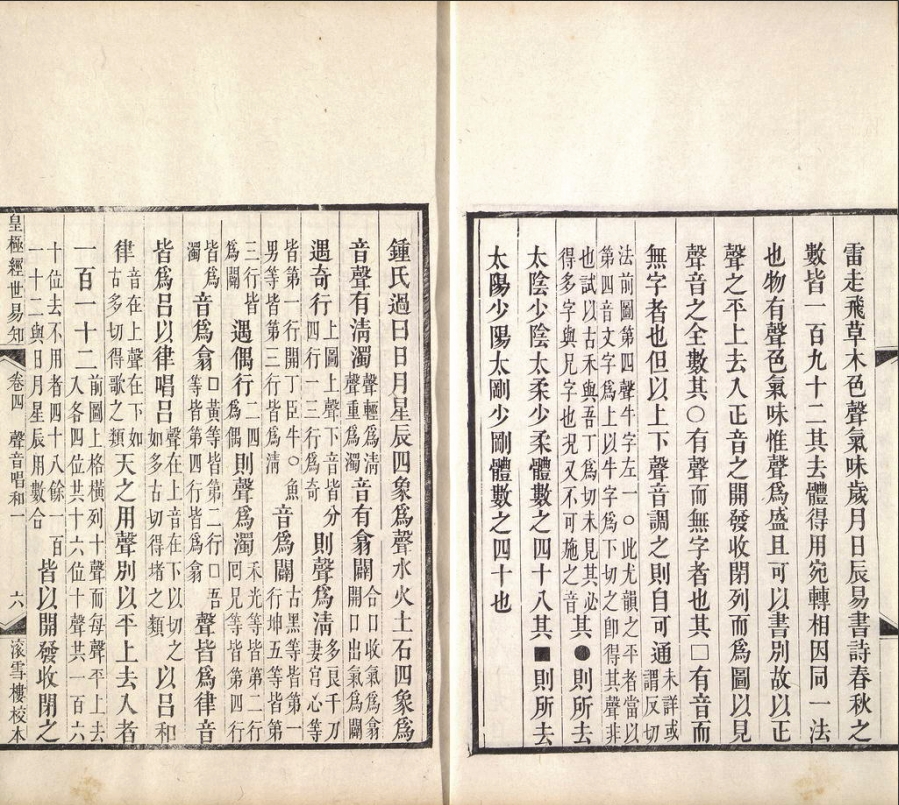 雷走飛草木色聲氣味歲月日辰易書詩春秋之
數皆一百九十二其去體得用宛轉相因同一法
也物有聲色氣味惟聲爲盛且可以書別故以正
聲之平上去入正音之開發收閉列而爲圖以見
聲音之全數其○有聲而無字者也其□有音而
無字者也但以上下聲音調之則自可通未詳或謂反切
法前圖第四聲牛字左一○此尤韻之平者當以
第四音文字爲上以牛字爲下切之卽得其聲非
也試以古禾與吾丁爲切未見其必●則所去
得多字與兄字也況又不可施之音
太陰少陰太柔少柔體數之四十八其■則所去
太陽少陽太剛少剛體數之四十也
鍾氏過曰日月星辰四象爲聲水火土石四象爲
音聲有淸濁聲輕爲淸聲重爲濁音有翕闢合口收氣爲翕開口出氣爲闢
遇奇行上圖聲下音皆分四行一三行爲奇則聲爲淸多良千刀妻宮心等
皆第一行開丁臣牛○魚男等皆第三行皆爲淸音爲闢古黑等皆第一行坤五等皆第
三行皆爲闢遇偶行二四爲偶則聲爲濁禾光等皆第二行囘兄等皆第四行
皆爲濁音爲翕□黃等皆第二行□吾等皆第四行皆爲翕聲皆爲律音
皆爲呂以律唱呂聲在上音在下以切之如多古切得堵之類以呂和
律音在上聲在下如古多切得歌之類天之用聲別以平上去入者
一百一十二前圖上格橫列十聲而每聲平上去入各四位共十六位十聲共一百六
十位去不用者四十八餘一百一十二與日月星辰用數合皆以開發收閉之
皇極經世易知
卷四 聲音唱和一
六
滚雪樓校本